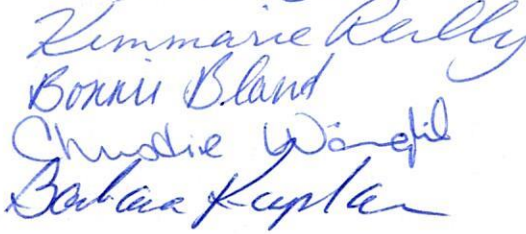 Kimmarie Reilly
Bonnie Bland
Christie
Barbara Kaplan